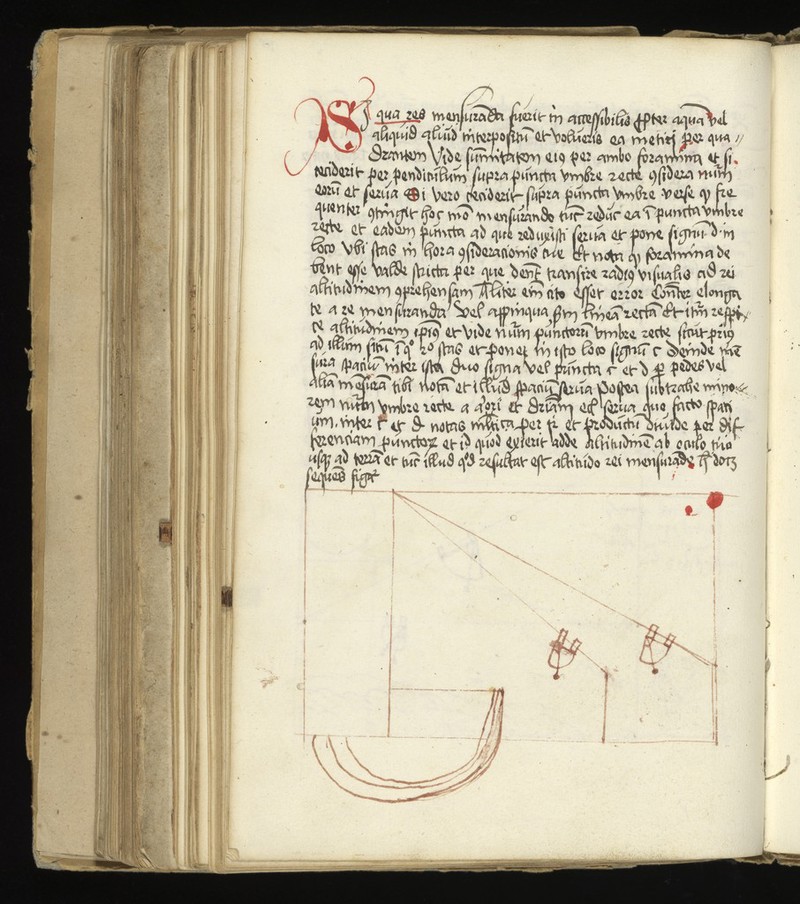 SI qua res mensurāda fuerit in accessibilis ꝓpter aquā vel
aliquid aliud interpositū et volueris ea metiri per qua〃
drantem Vide sūmitatem eiꝰ per ambo foramina et si
ceciderit per pendiculum supra puncta vmbre recte ꝯsidera num̄
eorū et serua Si vero ceciderit supra puncta vmbre verse ꝙ fre
quenter ꝯtingit hoc mō mensurando tūc reduc ea ī puncta vmbre
recte et eadem puncta ad que reduxisti serua et pone signū d in
loco vbi stas in hora ꝯsideracionis tue Et nota ꝙ foramina de
bent esse valde stricta per que debet transire radiꝰ visualis ad rei
altitudinem ꝯprehensam Aliter em̄ cito esset error Cōnter elonga
te a re mensuranda vel appīnqua sm̄ lineā rectā Et itm̄ respi
ce altitudinem ipiꝰ et vide num̄ punctorū vmbre recte sicut priꝰ
ad illum sitū ī qͦ stas et pones in isto loco signū c Deinde mē
sura spaciū inter ista duo signa vel puncta c et d ꝑ pedes vel
aliā mēsurā tibi notā et illud spaciū serua Postea subtrahe mino
rem num̄ vmbre recte a maiori et driām eiꝰ serua que facto spaci
um inter c et d notas ml̄tīca per 12 et productū diuide per dif
ferenciam punctoꝝ et id quod exierit adde altitudinē ab oculo tuo
usqꝫ ad terrā et tūc illud qd̓ resultat est altitudo rei mensurade ut docꝫ
sequens figͣ